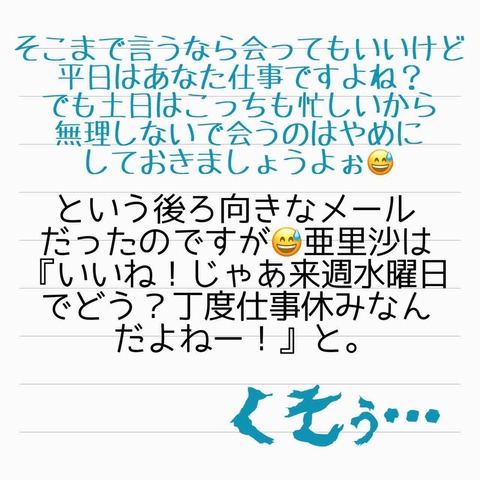 そこまで言うなら会ってもいいけど
平日はあなた仕事ですよね？
でも土日はこっちも忙しいから
無理しないで会うのはやめに
しておきましょうよぉ😅
という後ろ向きなメール
だったのですが😅亜里沙は
『いいね！じゃあ来週水曜日
でどう？丁度仕事休みなん
だよねー！』と。
くそぅ…